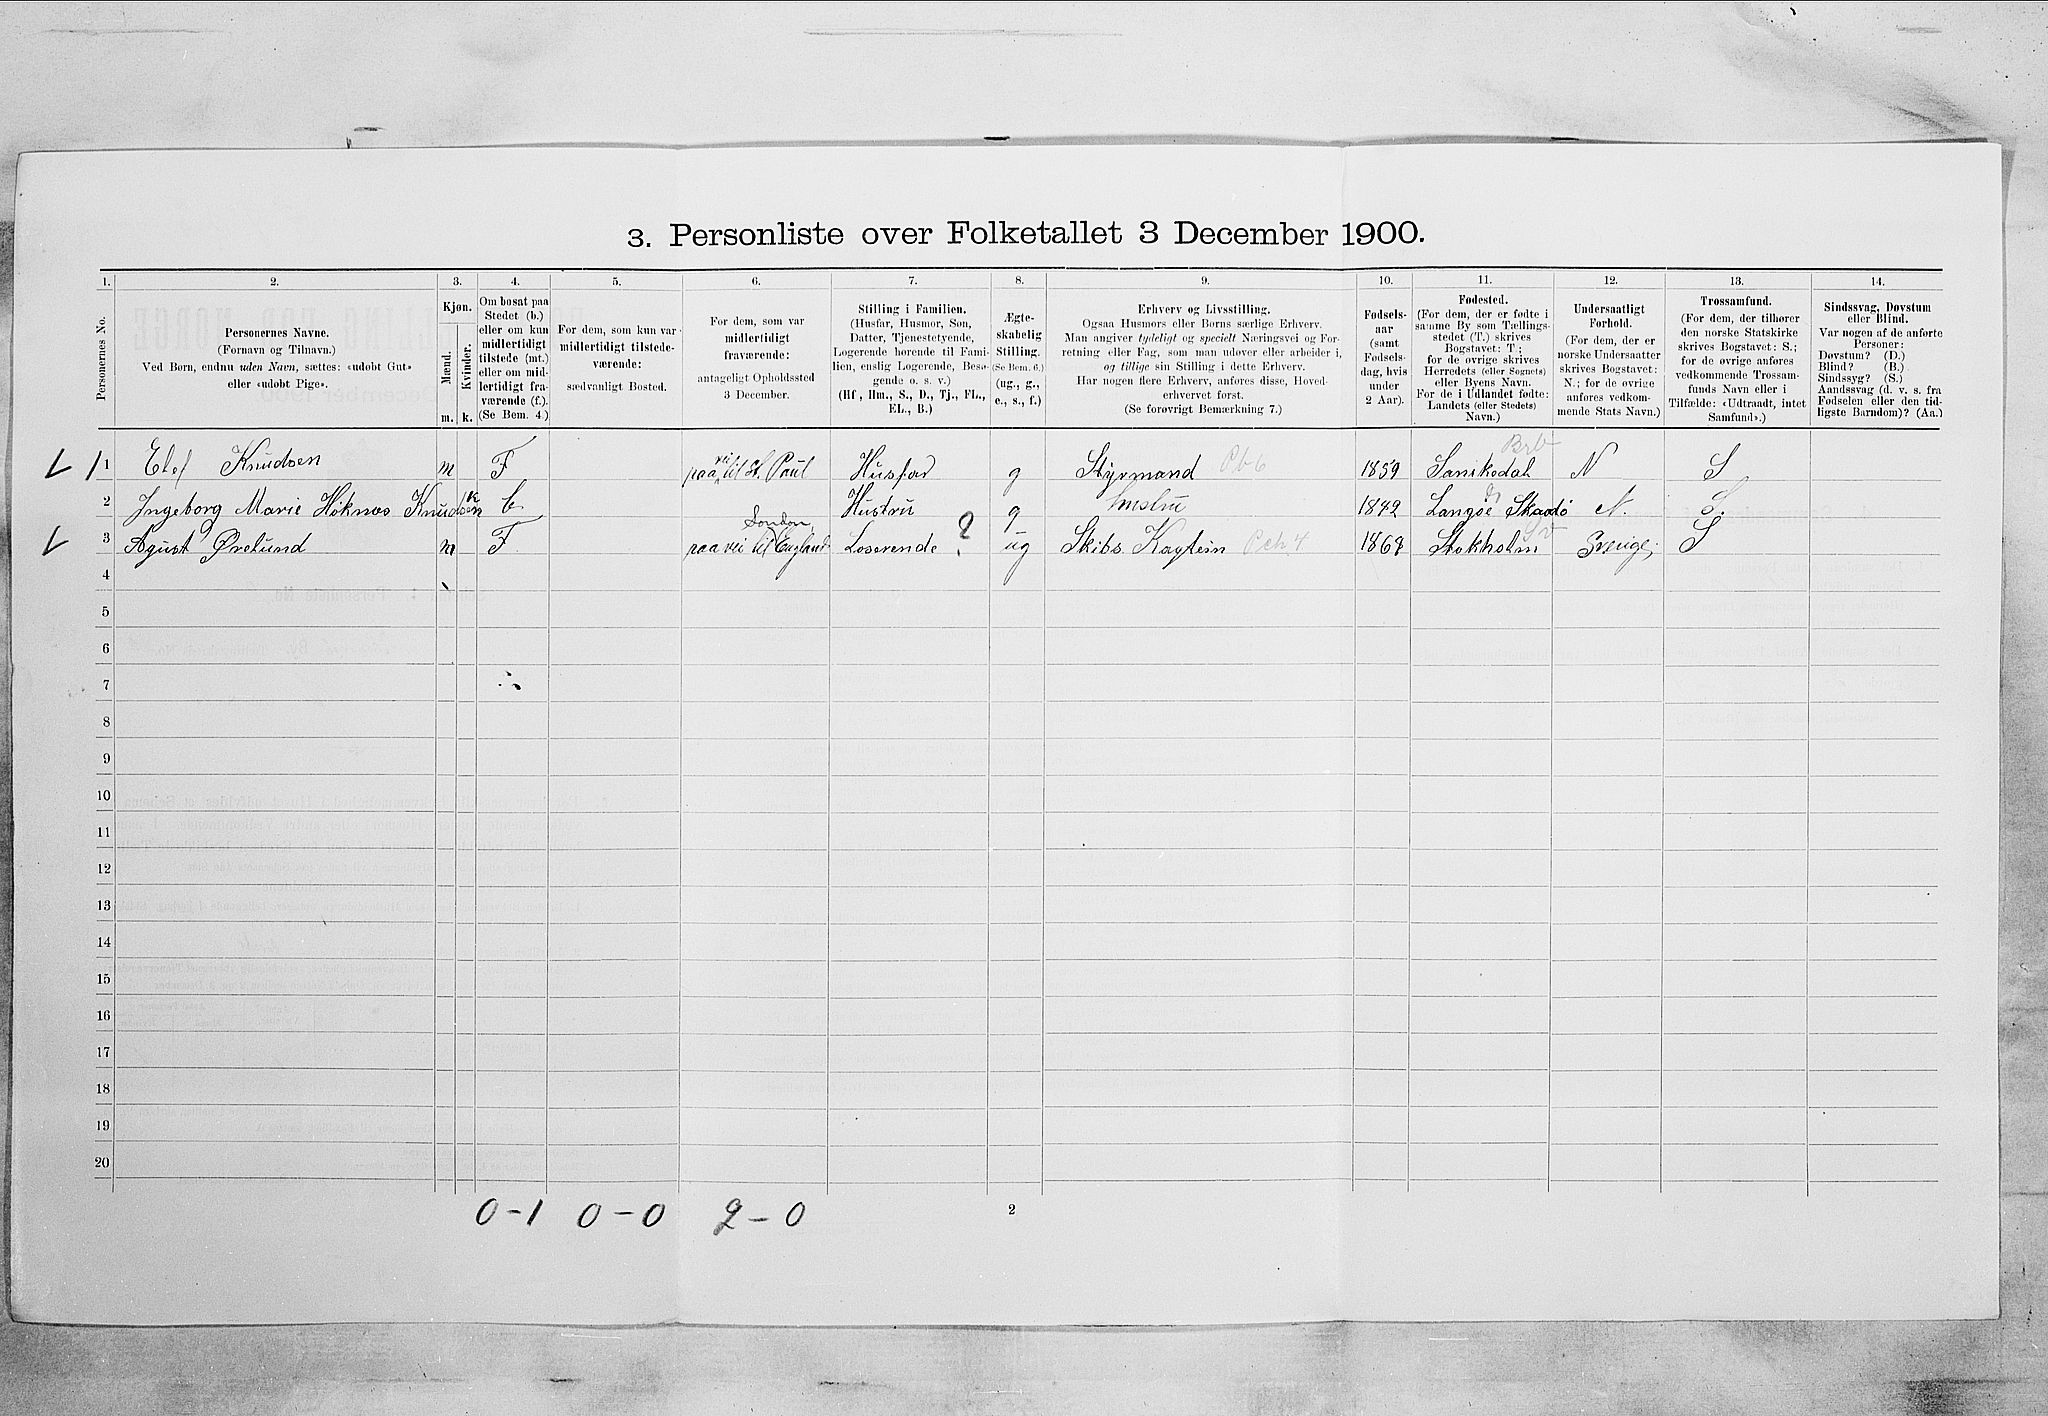 3. Personliste over Folketallet 3 December 1900.
1. 2. 3. 4. 5. 6. 7. 8. 9. 10. 11. 12. 13. 14.
Personernes No.
Personernes Navne.
(Fornavn og Tilnavn.)
Ved Børn, endnu uden Navn, sættes: «udøbt Gut»
eller «udøbt Pige».
Kjøn.
Mænd.
Kvinder.
m. k.
Om bosat paa
Stedet (b.)
eller om kun
midlertidigt
tilstede (mt.)
eller om mid-
lertidigt fra-
værende (f.).
(Se Bem. 4.)
For dem, som kun var
midlertidigt tilstede-
værende:
sædvanligt Bosted.
For dem, som var
midlertidigt
fraværende:
antageligt Opholdssted
3 December.
Stilling i Familien.
(Husfar, Husmor, Søn,
Datter, Tjenestetyende,
Logerende hørende til Fami-
lien, enslig Logerende, Besø-
gende o. s. v.)
(Hf., Hm., S., D., Tj., FL.,
EL., B.)
Ægte-
skabelig
Stilling.
(Se Bem. 6.)
(ug., g.,
e., s., f.)
Erhverv og Livsstilling.
Ogsaa Husmors eller Børns særlige Erhverv.
Man angiver tydeligt og specielt Næringsvei og For-
retning eller Fag, som man udøver eller arbeider i,
og tillige sin Stilling i dette Erhverv.
Har nogen flere Erhverv, anføres disse, Hoved-
erhvervet først.
(Se forøvrigt Bemærkning 7.)
Fødsels-
aar
(samt
Fødsels-
dag, hvis
under
2 Aar).
Fødested.
(For dem, der er fødte i
samme By som Tællings-
stedet (T.) skrives
Bogstavet: T;
for de øvrige skrives
Herredets (eller Sognets)
eller Byens Navn.
For de i Udlandet fødte:
Landets (eller Stedets)
Navn.)
Undersaatligt
Forhold.
(For dem, der er
norske Undersaatter
skrives Bogstavet:
N.; for de øvrige
anføres vedkom-
mende Stats Navn.)
Trossamfund.
(For dem, der tilhører
den norske Statskirke
skrives Bogstavet: S.;
for de øvrige anføres
vedkommende Trossam-
funds Navn eller i
Tilfælde: «Udtraadt, intet
Samfund».)
Sindssvag, Døvstum
eller Blind.
Var nogen af de anførte
Personer:
Døvstum? (D.)
Blind? (B.)
Sindssyg? (S.)
Aandssvag (d. v. s. fra
Fødselen eller den tid-
ligste Barndom)? (Aa.)
1 Knudsen m F paa vei til St. Paul Husfar g Styrmand 1859 Sanikedal N S
2 Ingeborg Marie Høknes Knudsen k b Hustru g hustru 1842 Langøe Skaadø N. S.
3 Agust Ørelund m F paa vei til London England Loserende ? ug Skibs Kaptein 1868 Stokholm Sverige S
4
5
6
7
8
9
10
11
12
13
14
15
16
17
18
19
20
0-1 0-0 2-0
2